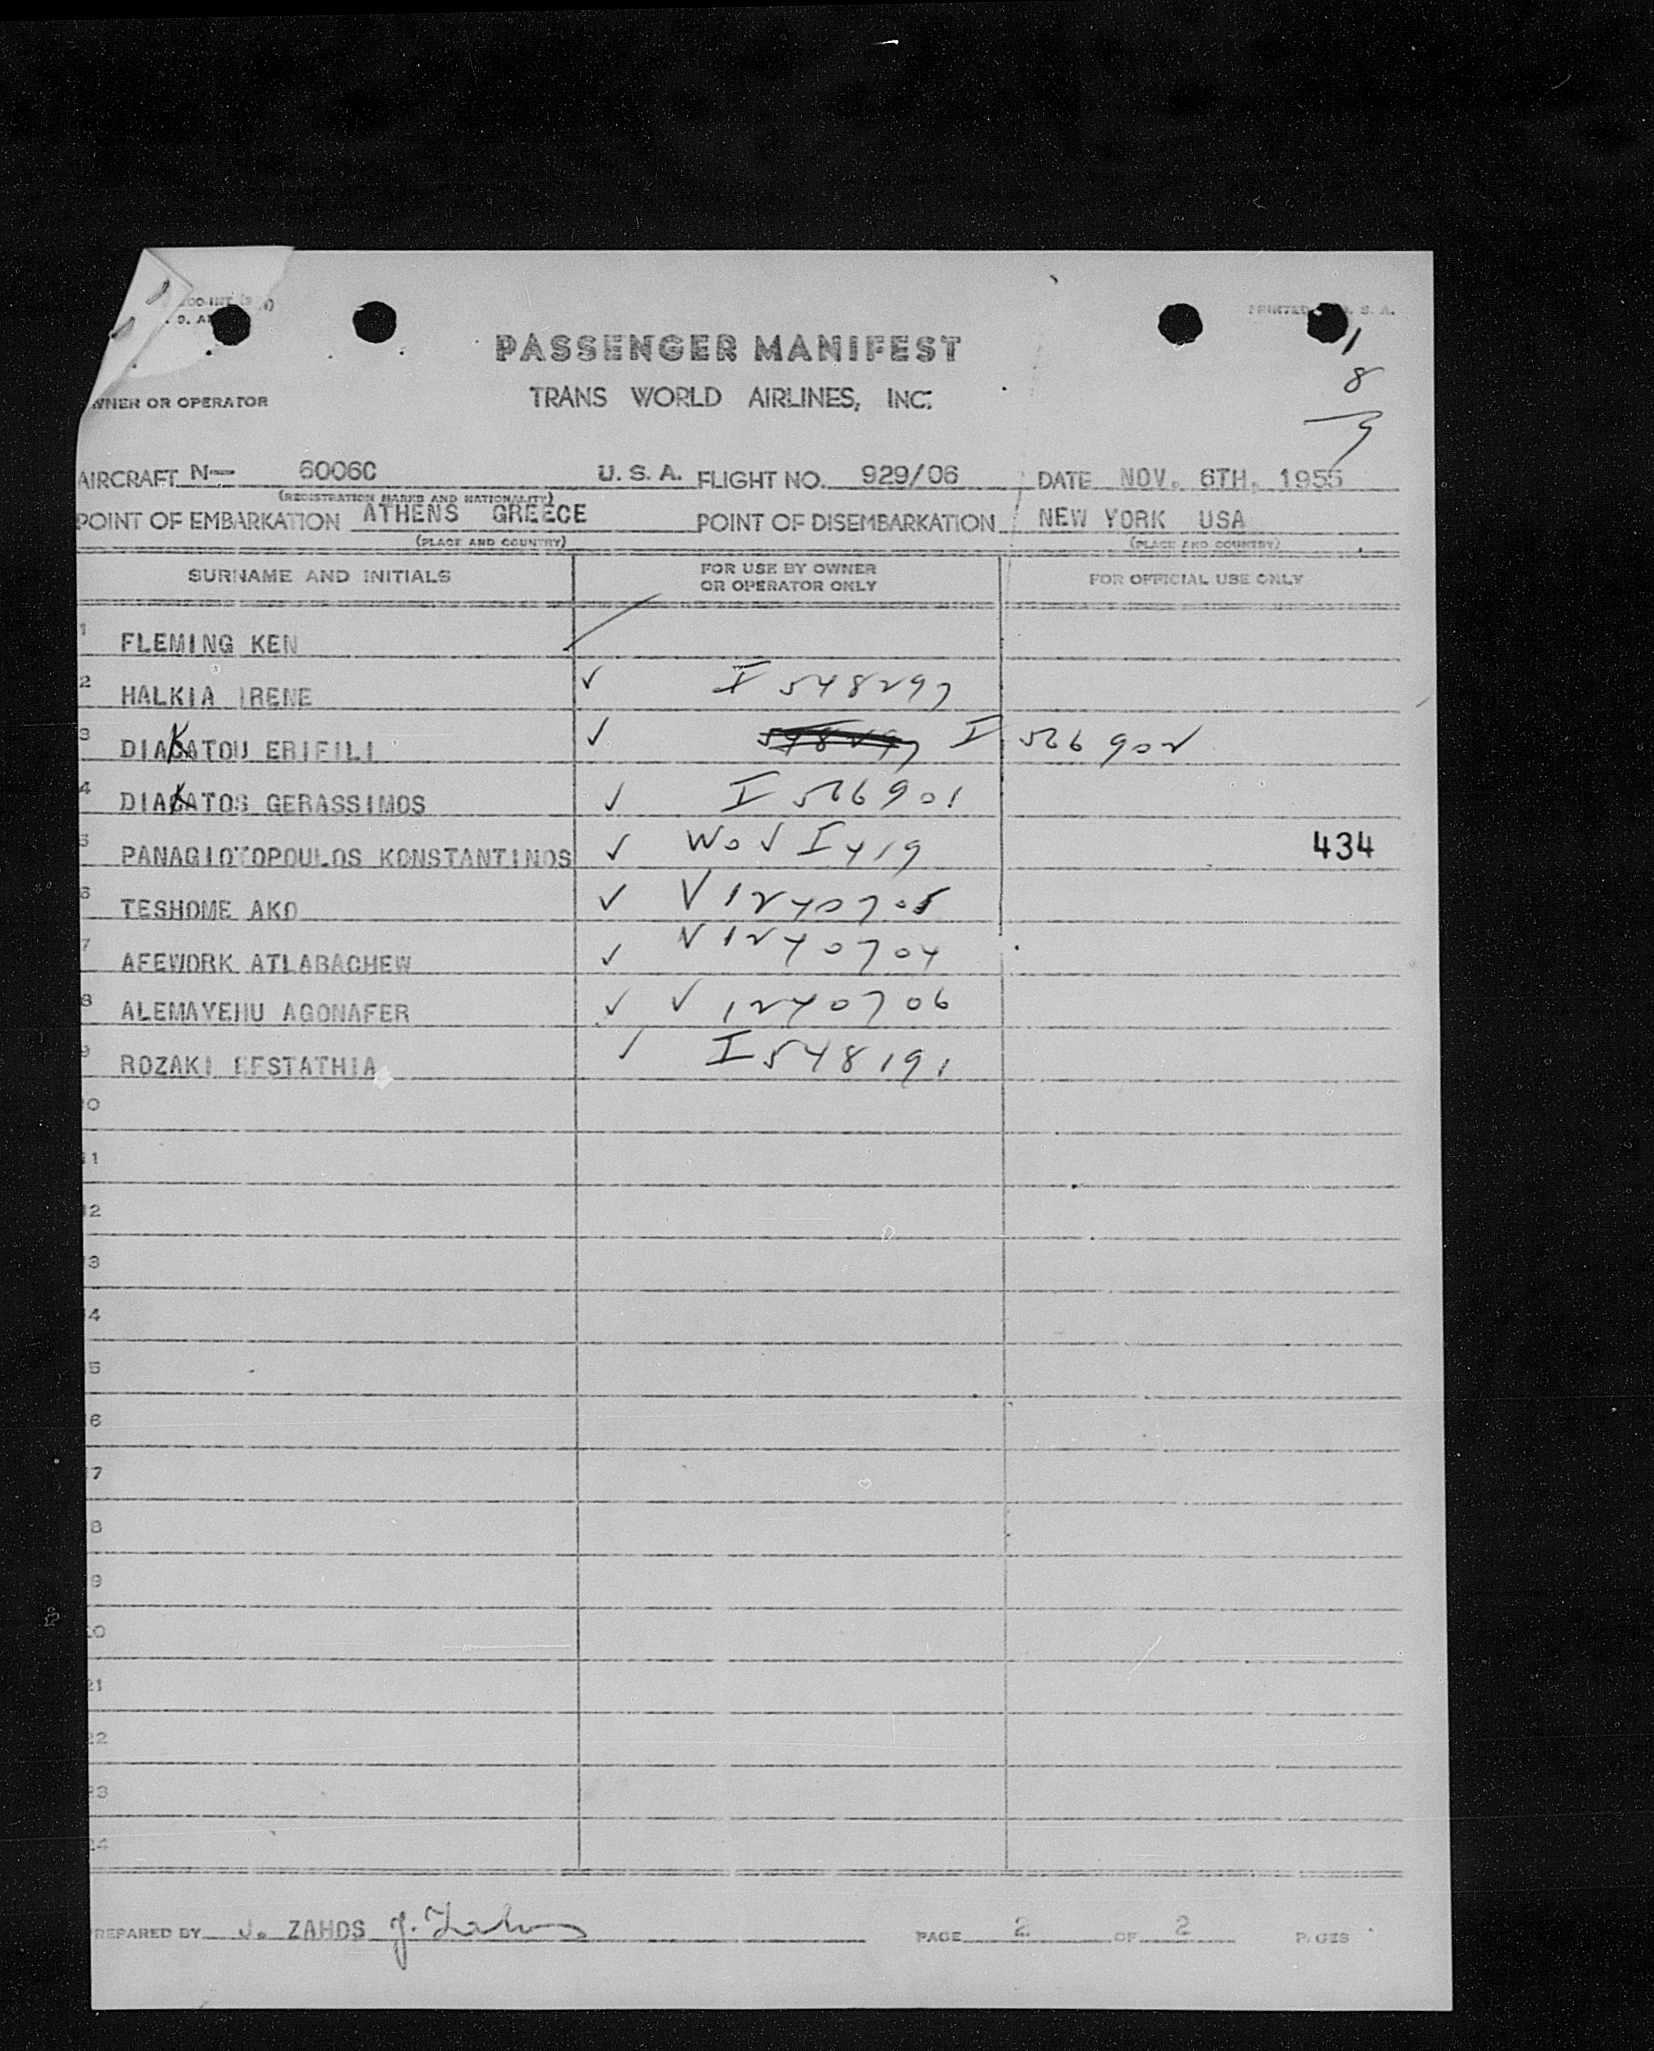 PRINTED U. S. A.
1
8
9
PASSENGER MANIFEST
TRANS WORLD AIRLINES, INC.
OWNER OR OPERATOR
AIRCRAFT N— 6006C U. S. A. FLIGHT NO. 929/06 DATE NOV. 6TH, 1955
(REGISTRATION MARKS AND NATIONALITY)
POINT OF EMBARKATION ATHENS GREECE POINT OF DISEMBARKATION NEW YORK USA
(PLACE AND COUNTRY) (PLACE AND COUNTRY)
SURNAME AND INITIALS FOR USE BY OWNER OR OPERATOR ONLY FOR OFFICIAL USE ONLY
1 FLEMING KEN
2 HALKIA IRENE ✓ I 548297
3 DIAKATOU ERIFILI ✓ 548297 I 526902
4 DIAKATOS GERASSIMOS ✓ I 526901
5 PANAGIOTOPOULOS KONSTANTINOS ✓ WoV I 419 434
6 TESHOME AKO ✓ V 1240705
7 AFEWORK ATLABACHEW ✓ V 1240704
8 ALEMAYEHU AGONAFER ✓ V 1240706
9 ROZAKI EFSTATHIA ✓ I 548191
10
11
12
13
14
15
16
17
18
19
20
21
22
23
24
PREPARED BY J. ZAHOS J. Zahos PAGE 2 OF 2 PAGES